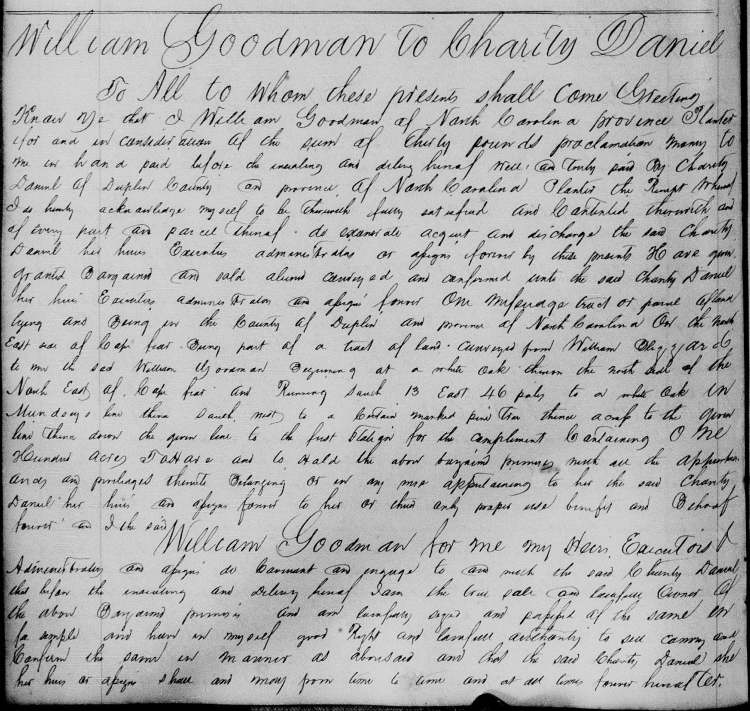 William Goodman To Charity Daniel
To All to whom these presents shall Come Greeting
Know ye that I William Goodman of North Carolina province Planter
for and in consideration of the sum of thirty pounds proclamation money to
me in hand paid before the ensealing and delivery hereof well and truly paid By Charity
Daniel of Duplin County and province of North Carolina Planter the Receipt whereof
I do hereby acknowledge myself to be therewith fully satisfied and Contented therewith and
of every part and parcel thereof do exonerate acquit and discharge the said Charity
Daniel her heirs Executors administrators or assigns forever by these presents Have given
granted Bargained and sold aliened conveyed and confirmed unto the said Charity Daniel
her heirs Executors administrators and assigns forever One messuage tract or parcel of land
lying and Being in the County of Duplin and province of North Carolina On the north
East side of Cape fear Being part of a tract of land conveyed from William Blizzard
to me the said William Goodman Beginning at a white oak the north side of the
North East of Cape fear and Running South 13 East 46 poles to a white Oak in
line thence South west to a Certain marked pine tree thence across to the given
line thence down the given line to the first Station for the compliment Containing One
Hundred Acres To Have and to Hold the above bargained premises with all the appurten
ances and privileges thereto Belonging or in any wise appertaining to her the said Charity
Daniel her heirs and assigns forever to her or their only proper use benefit and Behoof
forever and I the said
William Goodman for me my Heirs Executors &
Administrators and assigns do Covenant and engage to and with the said Charity Daniel
that before the ensealing and delivery hereof I am the true sole and lawfull Owner of
the above Bargained premises and am lawfully seized and possessed of the same in
fee simple and have in myself good Right and lawfull authority to sell convey and
Confirm the same in manner as abovesaid and that the said Charity Daniel she
her heirs or assigns shall and may from time to time and at all times forever hereafter